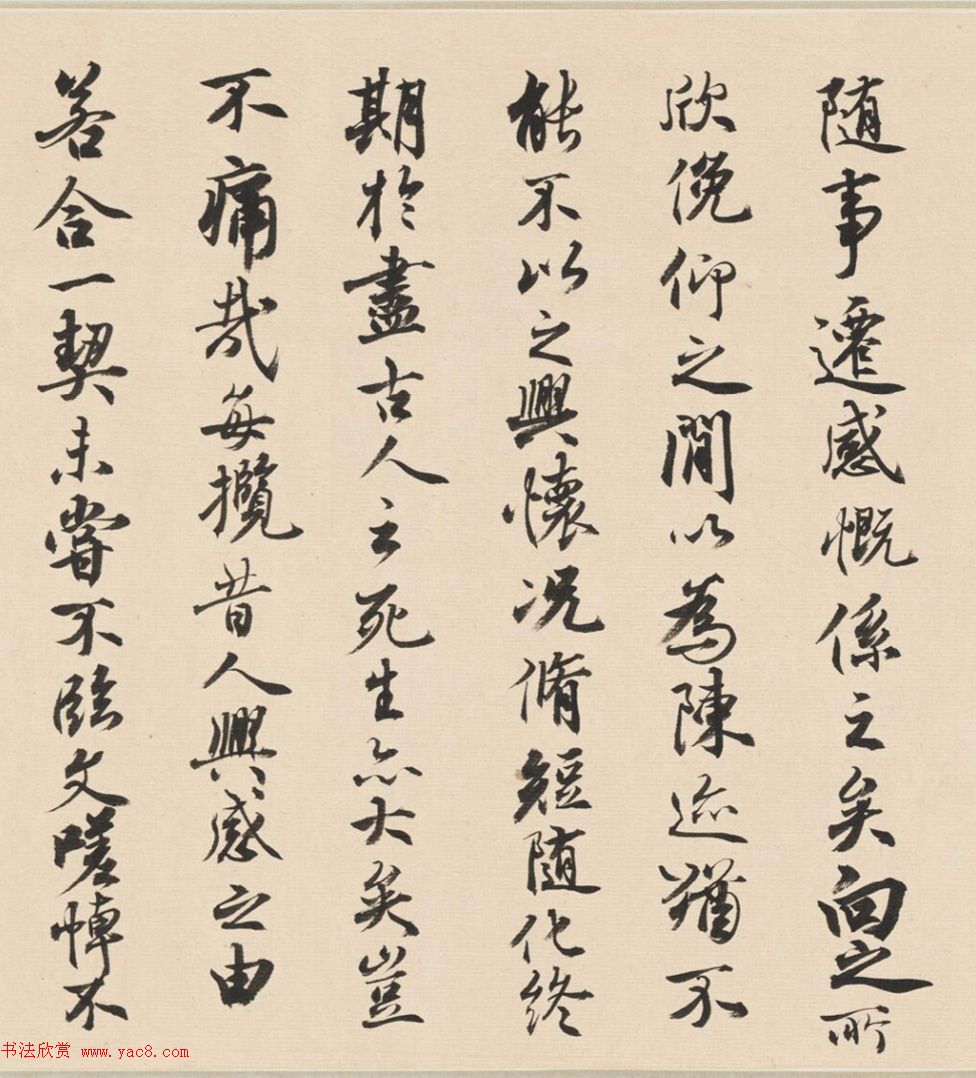 随事遷感慨係之矣向之所
欣俛仰之間以為陳迹猶不
能不以之興懷况脩短随化終
期於盡古人云死生亦大矣豈
不痛哉每攬昔人興感之由
若合一契未嘗不臨文嗟悼不
书法欣赏 www.yac8.com